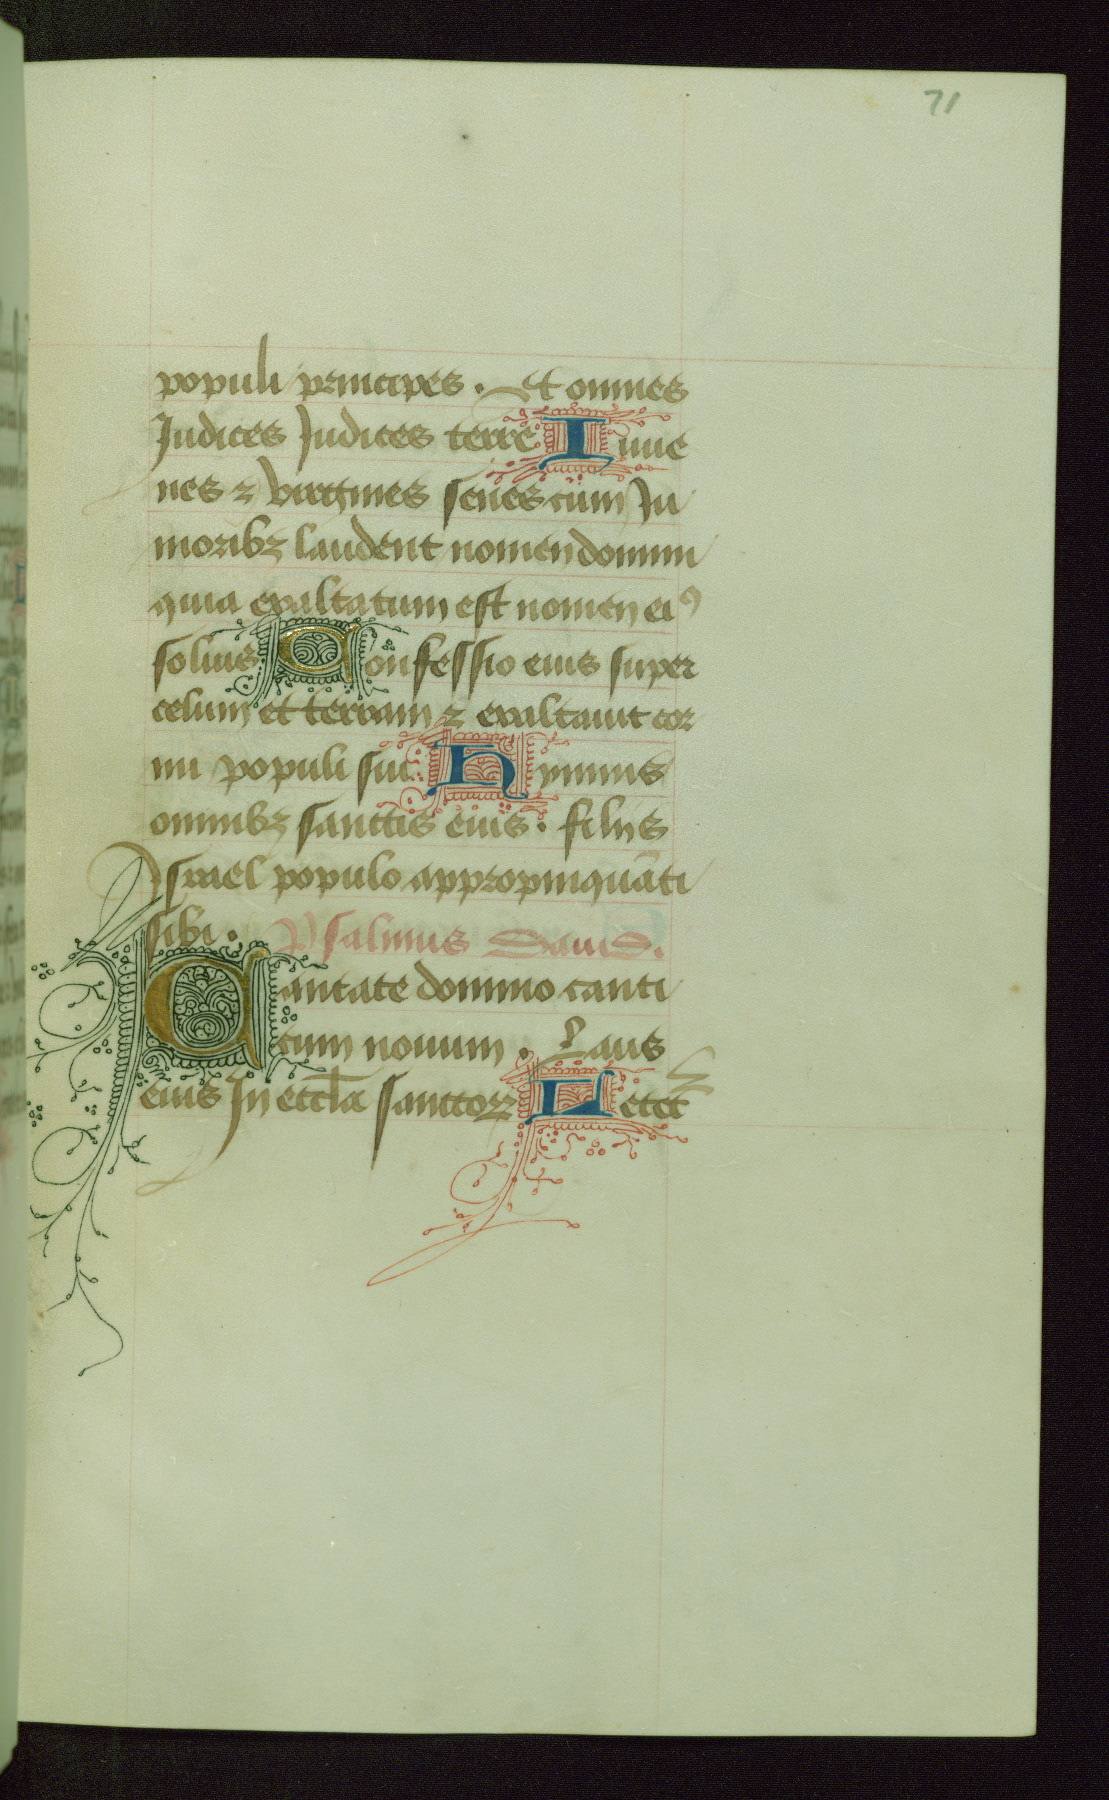 71
populi principes . Et omnes
Iudices Iudices terre Iuue
nes ⁊ virgines senes cum Iu
nioribꝫ laudent nomen domini
quia exaltatum est nomen eiꝰ
solius Confessio eius super
celum et terram ⁊ exaltauit cor
nu populi sui Hymnus
omnibꝫ sanctis eius . filijs
Israel populo appropinquāti
sibi . Psalmus Dauid .
Cantate domino canti
cum nouum . Laus
eius In eccl̄a sanctoꝝ Letet̄